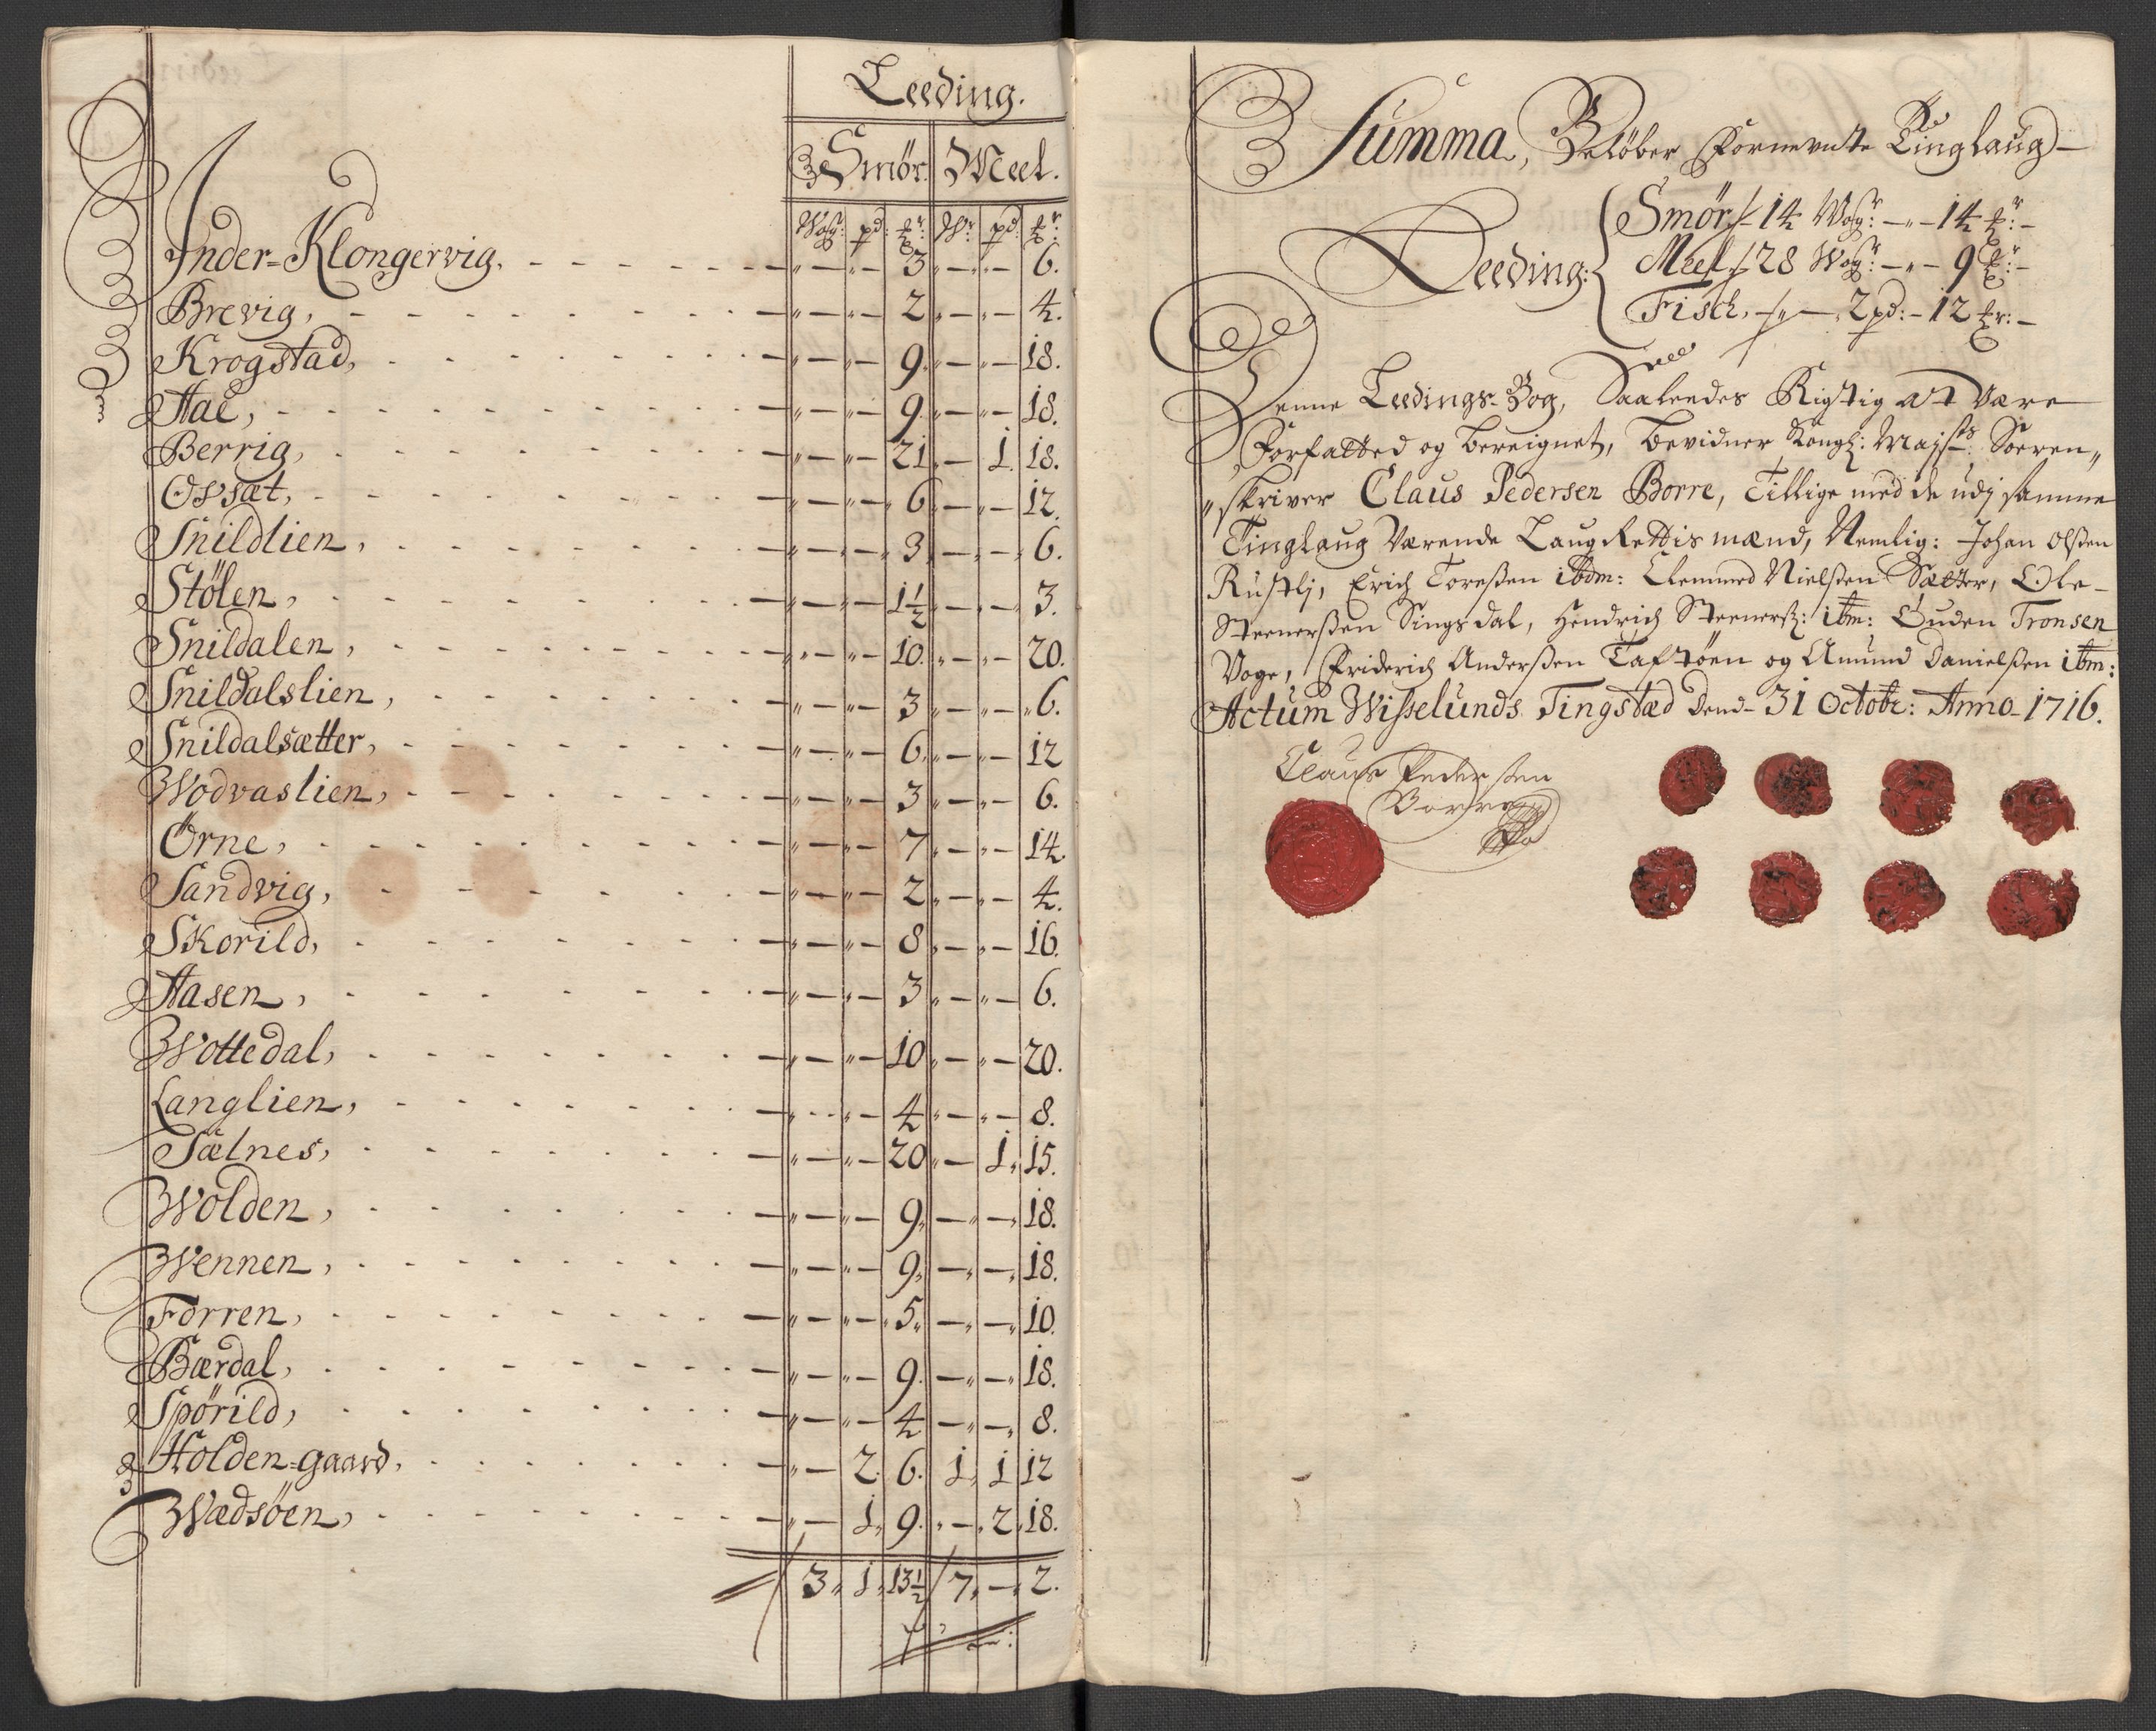 Leeding.
Smør. Meel.
Wog: pd: W: pd:
Inder-Klongervig. - - - 3 - - 6.
Brevig, - - - 2 - - 4.
Krogstad, - - - 9. - - 18.
Hae, - - - 9. - - 18.
Berrig, - - - 21. - 1. 18.
Ossæt, - - - 6. - - 12.
Snildlien, - - - 3. - - 6.
Stølen, - - - 1½ - - 3.
Snildalen, - - - 10. - - 20.
Snildalslien, - - - 3 - - 6.
Snildalsætter, - - - 6. - - 12
Wodvaslien, - - - 3 - - 6.
Ørne, - - - 7. - - 14.
Sandvig, - - - 2. - - 4.
Skorild, - - - 8. - - 16.
Aasen, - - - 3 - - 6.
Wottedal, - - - 10. - - 20.
Langlien, - - - 4 - - 8.
Sælnes, - - - 20 - 1. 15.
Wolden, - - - 9. - - 18.
Wennen, - - - 9. - - 18.
Forren, - - - 5. - - 10.
Bærdal, - - - 9. - - 18.
Spørild, - - - 4 - - 8.
Holden-gaard. - - 2. 6. 1. 1 12
Wædsøen, - - 1. 9. - 2. 18.
3. 1. 13½ 7. - 2.
Summa, Beløber Fornevnte Tinglaug-
Smør - 14 Wog: - 14 -
Leeding: Meel - 28 Wog: - 9 -
Fisch, - 2 pd: - 12 -
Denne Leedings-Bog, Saaleedes Rigtig at være
Forfatted og bereignet, bevidner Kongl: Majsts: Soren„
„skriver Claus Pedersen Borre, Tillige med de udj samme
Tinglaug Værende Laug Rettis mænd, Nemlig: Johan Olsen
Rustlj, Erich Toresen ibdm: Clemmed Nielsen Sætter, Ole-
Steenersen Singsdal, Hendrich Steeners: ibm: Ouden Tronsen
Voge, Friderich Andersen Taftøen og Amund Danielsen ibm:
Actum Wisselunds Tingstæd Dend 31 Octobr: Anno 1716.
Claus Pedersen
Borre